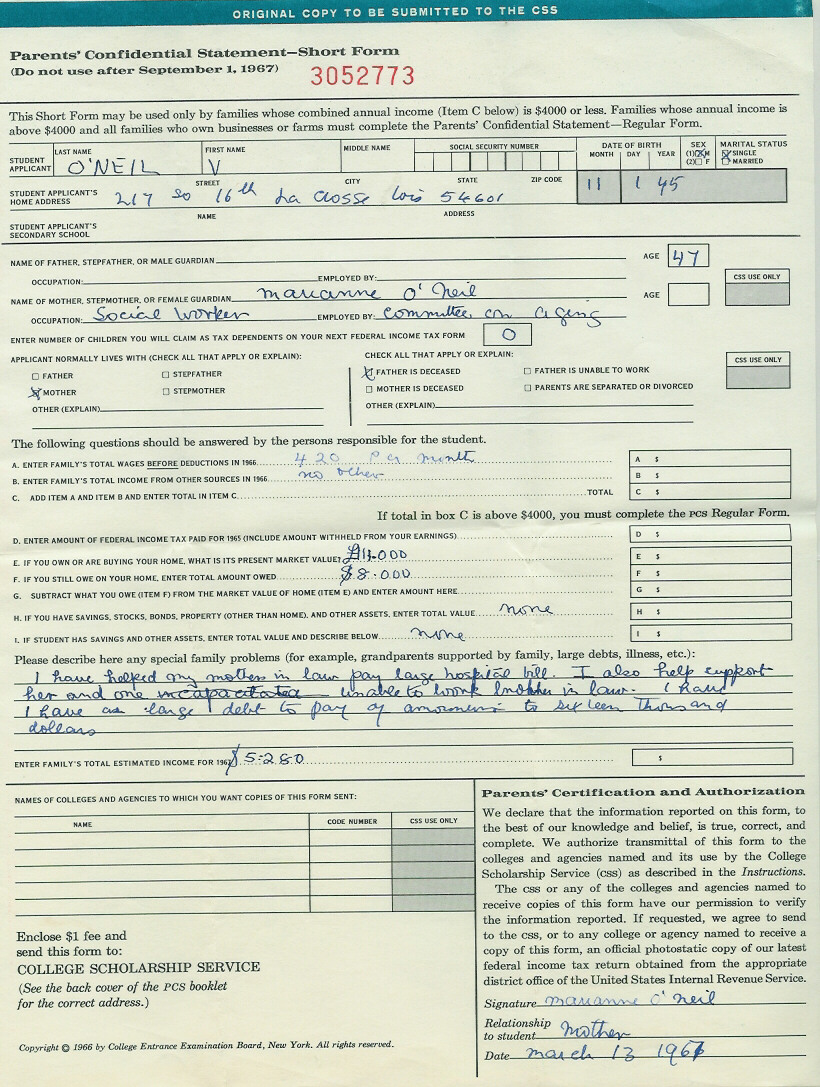 ORIGINAL COPY TO BE SUBMITTED TO THE CSS
Parents' Confidential Statement—Short Form
(Do not use after September 1, 1967) 3052773
This Short Form may be used only by families whose combined annual income (Item C below) is $4000 or less. Families whose annual income is
above $4000 and all families who own businesses or farms must complete the Parents' Confidential Statement—Regular Form.
STUDENT APPLICANT LAST NAME O'NEIL FIRST NAME V MIDDLE NAME SOCIAL SECURITY NUMBER DATE OF BIRTH MONTH DAY YEAR SEX (1) M (2) F MARITAL STATUS SINGLE MARRIED
STUDENT APPLICANT'S HOME ADDRESS STREET CITY STATE ZIP CODE
217 So 16th La Crosse Wis 54601 11 1 45
NAME ADDRESS
STUDENT APPLICANT'S SECONDARY SCHOOL
NAME OF FATHER, STEPFATHER, OR MALE GUARDIAN AGE 47
OCCUPATION: EMPLOYED BY: CSS USE ONLY
NAME OF MOTHER, STEPMOTHER, OR FEMALE GUARDIAN Marianne O'Neil AGE
OCCUPATION: Social Worker EMPLOYED BY: Committee on Aging
ENTER NUMBER OF CHILDREN YOU WILL CLAIM AS TAX DEPENDENTS ON YOUR NEXT FEDERAL INCOME TAX FORM 0
APPLICANT NORMALLY LIVES WITH (CHECK ALL THAT APPLY OR EXPLAIN): CHECK ALL THAT APPLY OR EXPLAIN: CSS USE ONLY
FATHER STEPFATHER FATHER IS DECEASED FATHER IS UNABLE TO WORK
MOTHER STEPMOTHER MOTHER IS DECEASED PARENTS ARE SEPARATED OR DIVORCED
OTHER (EXPLAIN) OTHER (EXPLAIN)
The following questions should be answered by the persons responsible for the student.
A. ENTER FAMILY'S TOTAL WAGES BEFORE DEDUCTIONS IN 1966 420 per month A $
B. ENTER FAMILY'S TOTAL INCOME FROM OTHER SOURCES IN 1966 no other B $
C. ADD ITEM A AND ITEM B AND ENTER TOTAL IN ITEM C TOTAL C $
If total in box C is above $4000, you must complete the PCS Regular Form.
D. ENTER AMOUNT OF FEDERAL INCOME TAX PAID FOR 1965 (INCLUDE AMOUNT WITHHELD FROM YOUR EARNINGS) D $
E. IF YOU OWN OR ARE BUYING YOUR HOME, WHAT IS ITS PRESENT MARKET VALUE? E $
F. IF YOU STILL OWE ON YOUR HOME, ENTER TOTAL AMOUNT OWED $8.000 F $
G. SUBTRACT WHAT YOU OWE (ITEM F) FROM THE MARKET VALUE OF HOME (ITEM E) AND ENTER AMOUNT HERE G $
H. IF YOU HAVE SAVINGS, STOCKS, BONDS, PROPERTY (OTHER THAN HOME), AND OTHER ASSETS, ENTER TOTAL VALUE none H $
I. IF STUDENT HAS SAVINGS AND OTHER ASSETS, ENTER TOTAL VALUE AND DESCRIBE BELOW none I $
Please describe here any special family problems (for example, grandparents supported by family, large debts, illness, etc.):
I have helped my mother in law pay large hospital bill. I also help support
her and one incapacitated unable to work brother in law. I have
I have a large debt to pay to sixteen thousand
dollars
ENTER FAMILY'S TOTAL ESTIMATED INCOME FOR 1967 $5280 $
NAMES OF COLLEGES AND AGENCIES TO WHICH YOU WANT COPIES OF THIS FORM SENT:
NAME CODE NUMBER CSS USE ONLY
Enclose $1 fee and
send this form to:
COLLEGE SCHOLARSHIP SERVICE
(See the back cover of the PCS booklet
for the correct address.)
Copyright © 1966 by College Entrance Examination Board, New York. All rights reserved.
Parents' Certification and Authorization
We declare that the information reported on this form, to
the best of our knowledge and belief, is true, correct, and
complete. We authorize transmittal of this form to the
colleges and agencies named and its use by the College
Scholarship Service (CSS) as described in the Instructions.
The CSS or any of the colleges and agencies named to
receive copies of this form have our permission to verify
the information reported. If requested, we agree to send
to the CSS, or to any college or agency named to receive a
copy of this form, an official photostatic copy of our latest
federal income tax return obtained from the appropriate
district office of the United States Internal Revenue Service.
Signature Marianne O'Neil
Relationship
to student Mother
Date March 13 1967